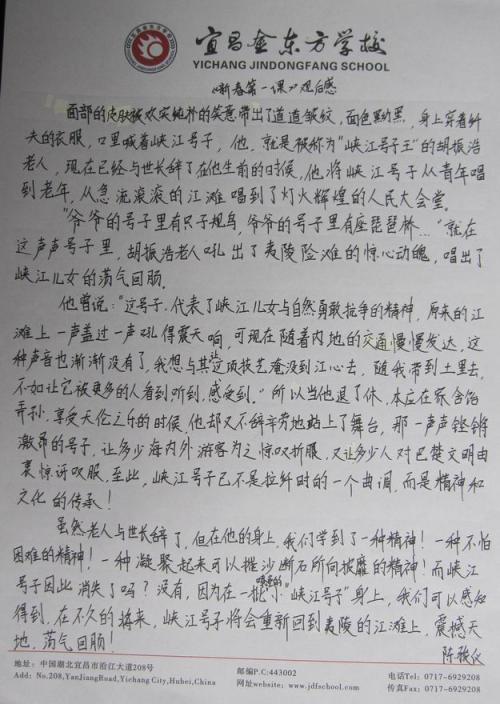 宜昌金东方学校
YICHANG JINDONGFANG SCHOOL
《新春第一课》观后感
面部的皮肤被欢实纯朴的笑意带出了道道皱纹，面色黝黑，身上穿着纤
夫的衣服，口里喊着峡江号子，他，就是被称为“峡江号子王”的胡振浩
老人，现在已经与世长辞了在他生前的日时候，他将峡江号子从青年唱
到老年，从急流滚滚的江滩唱到了灯火辉煌的人民大会堂。
“爷爷的号子里有只子规鸟，爷爷的号子里有座琵琶桥…”就在
这声声号子里，胡振浩老人吼出了夷陵险滩的惊心动魄，唱出了
峡江儿女的荡气回肠。
他曾说：“这号子，代表了峡江儿女与自然勇敢抗争的精神，原来的江
滩上一声盖过一声吼得震天响，可现在随着内地的交通慢慢发达，这
种声音也渐渐没有了，我想与其让这项技艺淹没到江心去，随我带到土里去，
不如让它被更多的人看到听到，感受到。”所以当他退了休，本应在家含饴
弄孙，享受天伦之乐的时候，他却又不辞辛劳地站上了舞台，那一声声铿锵
激昂的号子，让多少海内外游客为之惊叹折服，又让多少人对巴楚文明由
衷惊讶叹服，至此，峡江号子已不是拉纤时的一个曲调，而是精神和
文化的传承！
虽然老人与世长辞了，但在他的身上，我们学到了一种精神！一种不怕
困难的精神！一种凝聚起来可以搬沙断石所向披靡的精神！而峡江
号子因此消失了吗？没有，因为在一批小“峡江号子”身上，我们可以感知
得到，在不久的将来，峡江号子将会重新回到夷陵的江滩上，震撼天
地，荡气回肠！
陈
地址：中国湖北宜昌市沿江大道208号 邮编P.C:443002 电话Tel：0717-6929208
Add: No.208,YanJiangRoad,Yichang City,Hubei,China 网址website: www.jdfschool.com 传真Fax：0717-6929208